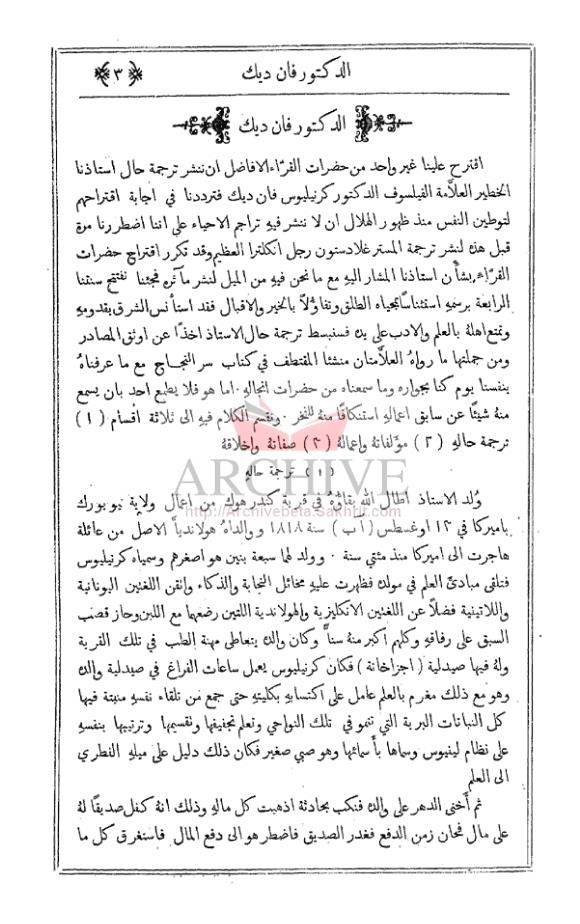 الدكتور فان ديك ﴿٣﴾
الدكتور فان ديك
اقترح علينا غير واحد من حضرات القرّاء الافاضل ان ننشر ترجمة حال استاذنا
الخطير العلاّمة الفيلسوف الدكتور كرنيليوس فان ديك فترددنا في اجابة اقتراحهم
لتوطين النفس منذ ظهور الهلال ان لا ننشر فيهِ تراجم الاحياء على اننا اضطررنا مرة
قبل هذه لنشر ترجمة المستر غلادستون رجل انكلترا العظيم وقد تكرر اقتراح حضرات
القرّاء بشأن استاذنا المشار اليهِ مع ما نحن فيهِ من الميل لنشر مآثره فجئنا نفتتح سنتنا
الرابعة برسمهِ استئناسًا بمحياه الطلق وتفاؤلاً بالخير والاقبال فقد استأنس الشرق بقدومهِ
وتمتع اهله بالعلم والادب على يده فسنبسط ترجمة حال الاستاذ اخذًا عن اوثق المصادر
ومن جملتها ما رواهُ العلاّمتان منشئا المقتطف في كتاب سر النجاح مع ما عرفناهُ
بنفسنا يوم كنا بجواره وما سمعناه من حضرات انجاله . اما هو فلا يطمع احد بان يسمع
منهُ شيئًا عن سابق اعماله استنكافًا منهُ للفخر . ونقسم الكلام فيهِ الى ثلاثة اقسام (١)
ترجمة حالهِ (٢) مؤلفاتهُ واعمالهُ (٣) صفاتهُ واخلاقهُ
(١) ترجمة حالهِ
ARCHIVE
http://Archivebeta.Sakhrit.com
وُلد الاستاذ اطال الله بقاؤهُ في قرية كندرهوك من اعمال ولاية نيويورك
باميركا في ١٣ اوغسطس (اب) سنة ١٨١٨ ووالداهُ هولانديا الاصل من عائلة
هاجرت الى اميركا منذ مئتي سنة . وولد لهما سبعة بنين هو اصغرهم وسمياه كرنيليوس
فتلقى مبادئ العلم في مولده فظهرت عليهِ مخائل النجابة والذكاء واتقن اللغتين اليونانية
واللاتينية فضلاً عن اللغتين الانكليزية والهولاندية اللتين رضعهما مع اللبن وحاز قصب
السبق على رفاقهِ وكلهم أكبر منهُ سنًّا وكان والده يتعاطى مهنة الطب في تلك القرية
ولهُ فيها صيدلية (اجزاخانة) فكان كرنيليوس يعمل ساعات الفراغ في صيدلية والده
وهو مع ذلك مغرم بالعلم عامل على اكتسابهِ بكليتهِ حتى جمع من تلقاء نفسهِ منبتة فيها
كل النباتات البرية التي تنمو في تلك النواحي وتعلم تجفيفها وتقسيمها وترتيبها بنفسهِ
على نظام لينيوس وسماها بأسمائها وهو صبي صغير فكان ذلك دليل على ميلهِ الفطري
الى العلم
ثم أخنى الدهر على والده فنكب بحادثة اذهبت كل مالهِ وذلك انهُ كفل صديقًا لهُ
على مال فحان زمن الدفع فغدر الصديق فاضطر هو الى دفع المال فاستغرق كل ما